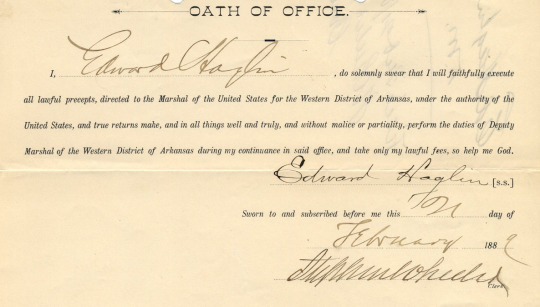 OATH OF OFFICE.
I, Edward Haglin, do solemnly swear that I will faithfully execute
all lawful precepts, directed to the Marshal of the United States for the Western District of Arkansas, under the authority of the
United States, and true returns make, and in all things well and truly, and without malice or partiality, perform the duties of Deputy
Marshal of the Western District of Arkansas during my continuance in said office, and take only my lawful fees, so help me God.
Edward Haglin [s.s.]
Sworn to and subscribed before me this day of
February 1889
Stephen Wheeler
Clerk